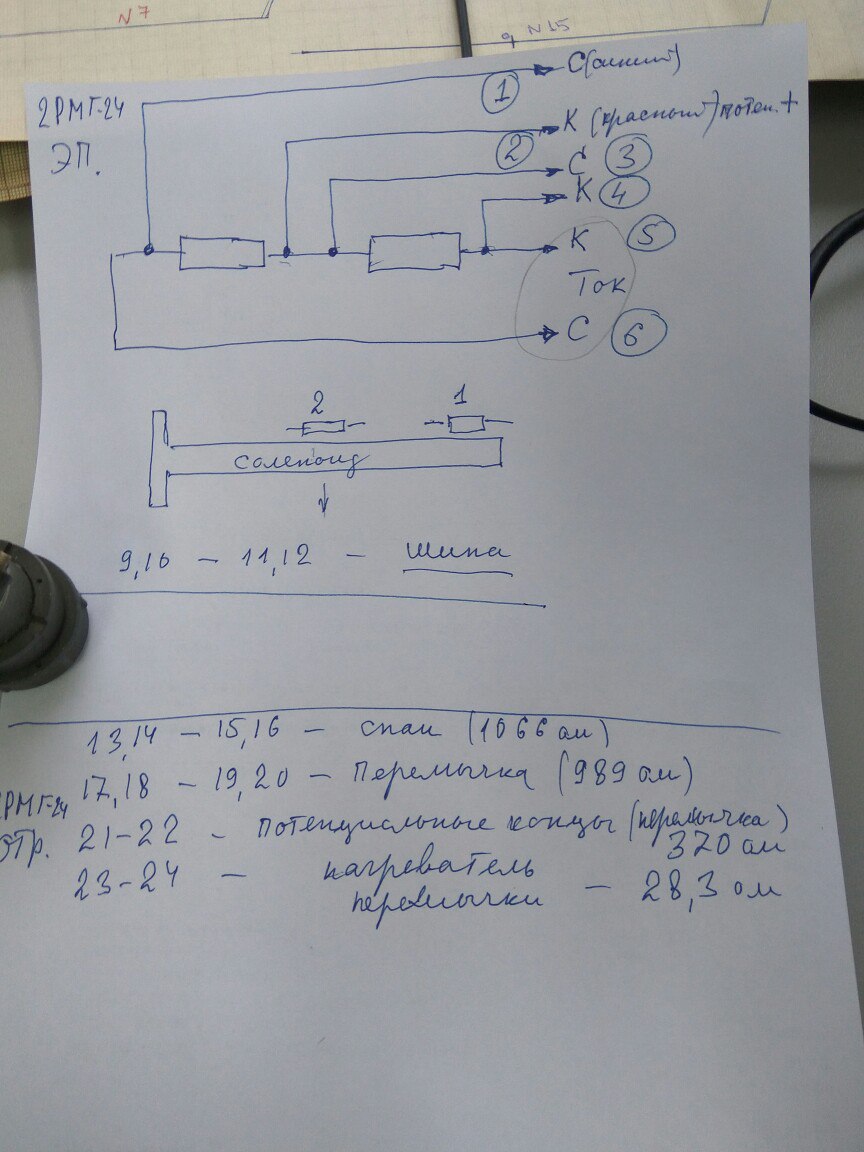 N7
N15
2РМГ-24
ЭП.
1
С(синий)
2
К (красный) потен. +
С 3
К 4
К 5
Ток
С 6
2 1
соленоид
9,10 – 11,12 – шина
13,14 – 15,16 – спаи (1066 ом)
17,18 – 19,20 – Перемычка (989 ом)
РМГ-24
21-22 – потенциальные концы (перемычка)
370 ом
23-24 – нагреватель
перемычки – 28,3 ом